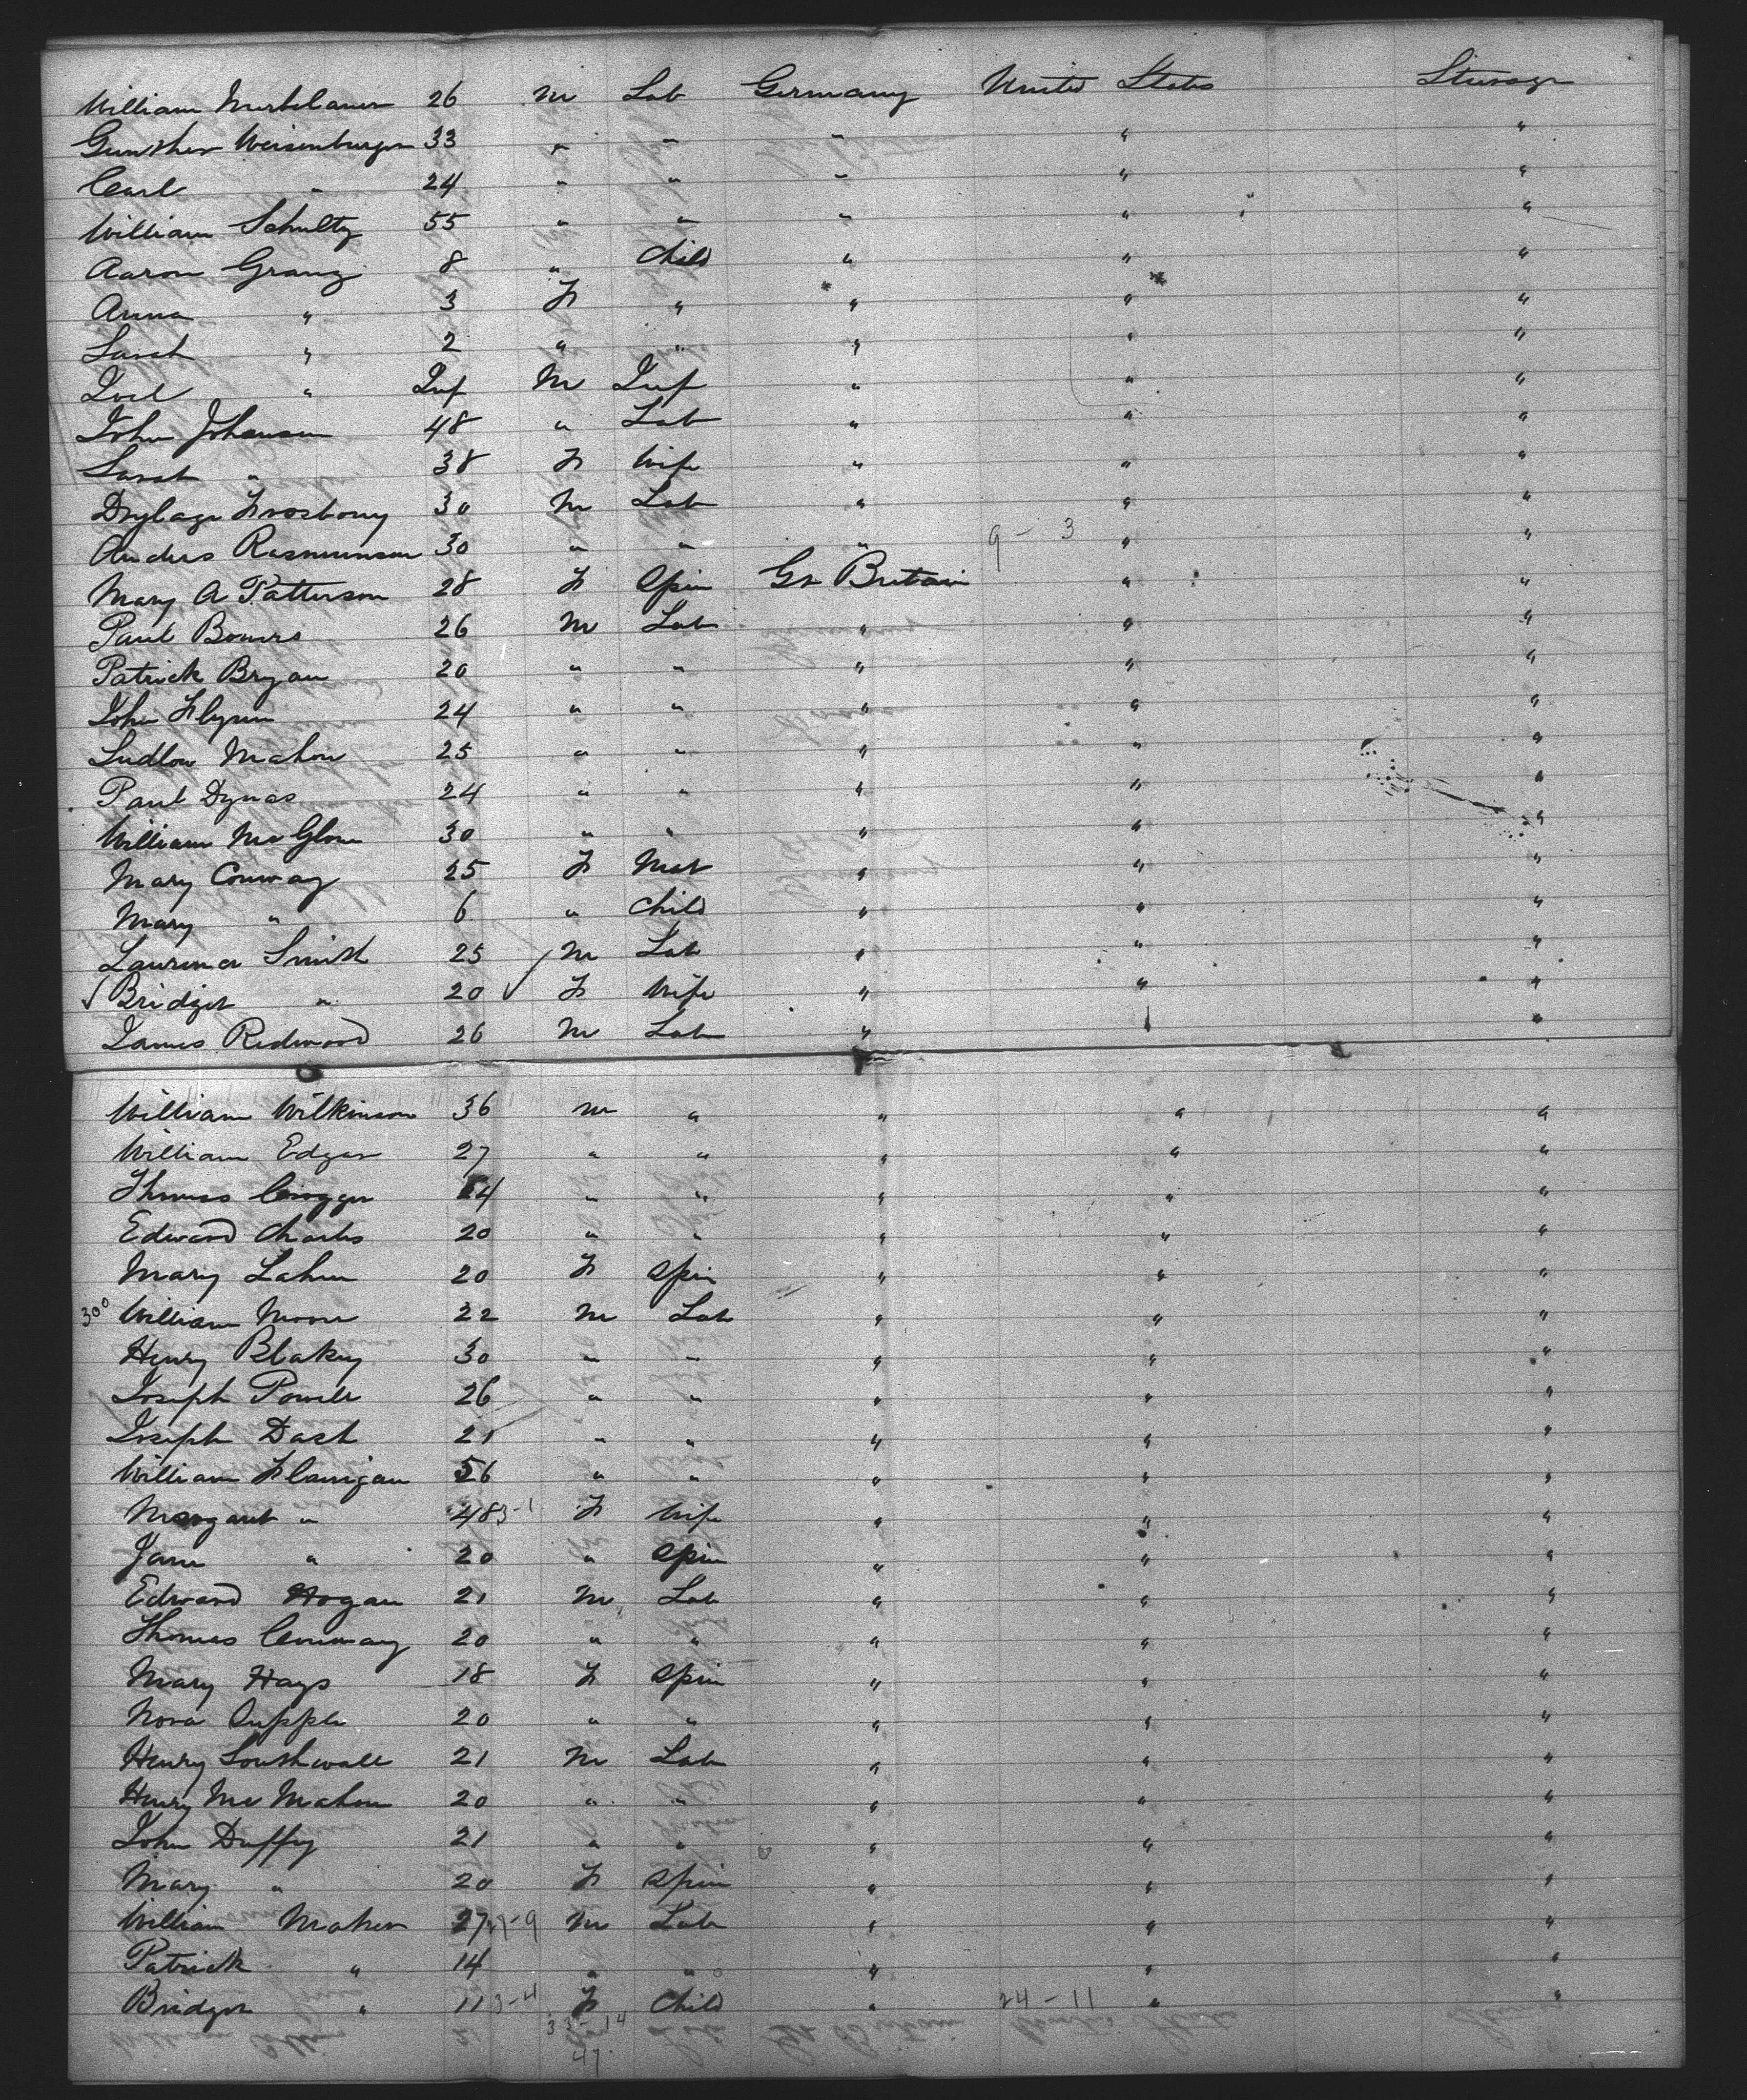 William 26 m Lab Germany United States Steerage
Gunther Weisenburger 33 " " " " "
Carl " 24 " " " " "
William Schultz 55 " " " " "
Aaron Granz 8 " Child " " "
Anna " 3 F " " " "
Sarah " 2 " " " " "
Joel " Inf M Inf " " "
John Johansen 48 " Lab " " "
Sarah " 38 F Wife " " "
30 M Lab " " "
Anders Rasmunson 30 " " " 9 - 3 "  "
Mary A Patterson 28 F Spin Gt Britain " "
Paul Bowers 26 M Lab " " "
Patrick Bryan 20 " " " " "
John Flynn 24 " " " " "
Ludlow Mahon 25 " " " " "
Paul Dynas 24 " " " " "
William McGlone 30 " " " " "
Mary Conway 25 F Mat " " "
Mary " 6 " Child " " "
Laurence Smith 25 M Lab " " "
Bridget " 20 F Wife " " "
James Redwood 26 M Lab " " "
William Wilkinson 36 m " " " "
William Edgar 27 " " " " "
Thomas 4 " " " " "
Edward Charles 20 " " " " "
Mary Lahen 20 F Spin " " "
300 William Moore 22 M Lab " " "
Henry Blakey 30 " " " " "
Joseph Powell 26 " " " " "
Joseph Dash 21 " " " " "
William Flanigan 56 " " " " "
Margaret " 48 3-1 F Wife " " "
Jane " 20 " Spin " " "
Edward Hogan 21 M Lab " " "
Thomas Conway 20 " " " " "
Mary Hays 18 F Spin " " "
Nora Supple 20 " " " " "
Henry Southwall 21 M Lab " " "
Henry McMahon 20 " " " " "
John Duffy 21 " " " " "
Mary " 20 F Spin " " "
William Maher 27 21-9 M Lab " " "
Patrick " 14 " " " " "
Bridget " 11 3-4 F Child " 24-11 " "
33-14
47